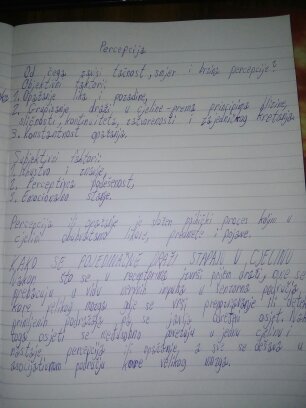 Percepcija
Od čega zavisi tačnost, smjer i brzina percepcije?
Objektivni faktori:
1. Opažanje lika i pozadine,
2. Grupisanje draži u cjeline-prema principima blizine,
sličnosti, kontinuiteta, zatvorenosti i zajedničkog kretanja
3. Konstantnost opažanja.
Subjektivni faktori:
1. Iskustvo i znanje,
2. Perceptivna podešenost,
3. Emocionalno stanje.
Percepcija ili opažanje je složen psihički proces kojim u
cjelini obuhvatamo likove, predmete i pojave.
KAKO SE POJEDINAČNE DRAŽI STAPAJU U CJELINU
Nakon što se u receptorima izvrši prijem draži, one se
prebacuju u vidu nervnih impulsa u senzorna područja
kore velikog mozga gdje se vrši prepoznavanje ili
primljenih podražaja pa se javlja osjetni osjet. Nakon
toga osjeti se međusobno povezuju u jednu cjelinu i
nastaje percepcija ili opažanje, a sve se dešava u
asocijativnom području kore velikog mozga.